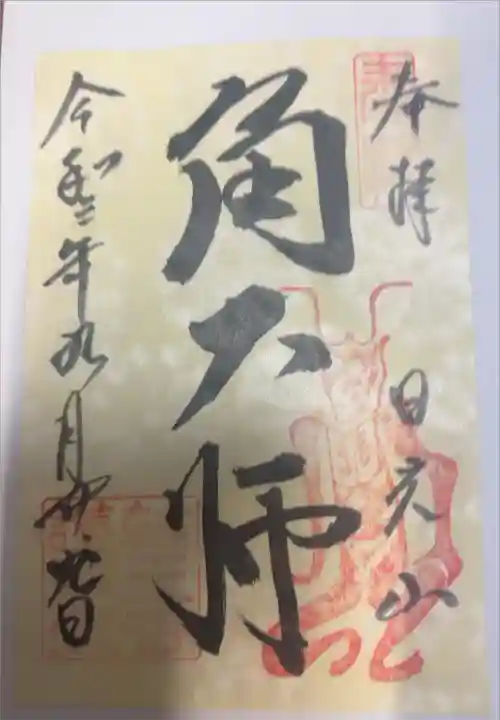 奉拝
日光山
角大師
令和三年九月廿九日